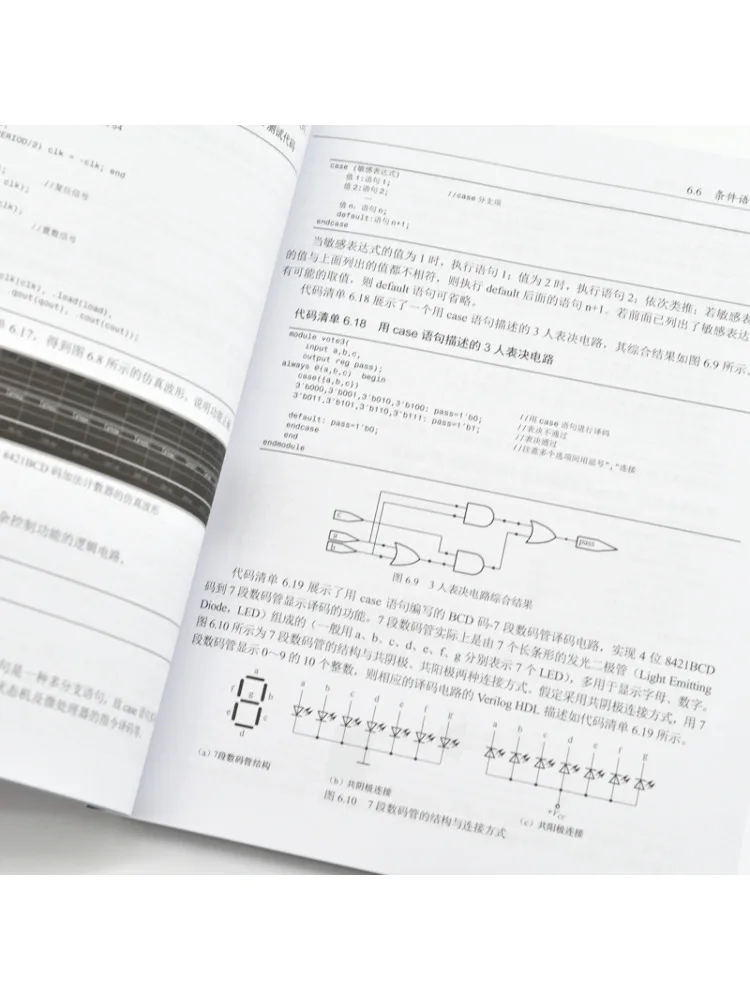 PERIOD/2) clk = ~clk; end
测试代码
clk);
//复位信号
clk);
clk);
//置数信号
clk(clk), .load(load),
.qout(qout), .cout(cout));
6.17，得到图 6.8 所示的仿真波形，说明功能
8421BCD 码加法计数器的仿真波形
杂控制功能的逻辑电路。
句是一种多分支语句，故 case 语句
状态机及微处理器的指令译码等。
6.6 条件语
case (敏感表达式)
值 1:语句 1; //case 分支项
值 2:语句 2;
…
值 n: 语句 n;
default:语句 n+1;
endcase
当敏感表达式的值为 1 时，执行语句 1；值为 2 时，执行语句 2；依次类推；若敏感表
的值与上面列出的值都不相符，则执行 default 后面的语句 n+1。若前面已列出了敏感表达
有可能的取值，则 default 语句可省略。
代码清单 6.18 展示了一个用 case 语句描述的 3 人表决电路，其综合结果如图 6.9 所示。
代码清单 6.18 用 case 语句描述的 3 人表决电路
module vote3(
input a,b,c,
output reg pass);
always @(a,b,c) begin
case({a,b,c}) //用 case 语句进行译码
3'b000,3'b001,3'b010,3'b100: pass=1'b0; //表决不通过
3'b011,3'b101,3'b110,3'b111: pass=1'b1; //表决通过
//注意多个选项间用逗号","连接
default: pass=1'b0;
endcase
end
endmodule
c
a
b
pass
图 6.9 3 人表决电路综合结果
代码清单 6.19 展示了用 case 语句编写的 BCD 码-7 段数码管译码电路，实现 4 位 8421BCD
码到 7 段数码管显示译码的功能。7 段数码管实际上是由 7 个长条形的发光二极管（Light Emitting
Diode，LED）组成的（一般用 a、b、c、d、e、f、g 分别表示 7 个 LED），多用于显示字母、数字。
图 6.10 所示为 7 段数码管的结构与共阴极、共阳极两种连接方式。假定采用共阴极连接方式，用 7
段数码管显示 0～9 的 10 个整数，则相应的译码电路的 Verilog HDL 描述如代码清单 6.19 所示。
a
f g b
e c
d
a b c d e f g
a b c d e f g
+VCC
（a）7段数码管结构
（b）共阴极连接
（c）共阳极连接
图 6.10 7 段数码管的结构与连接方式